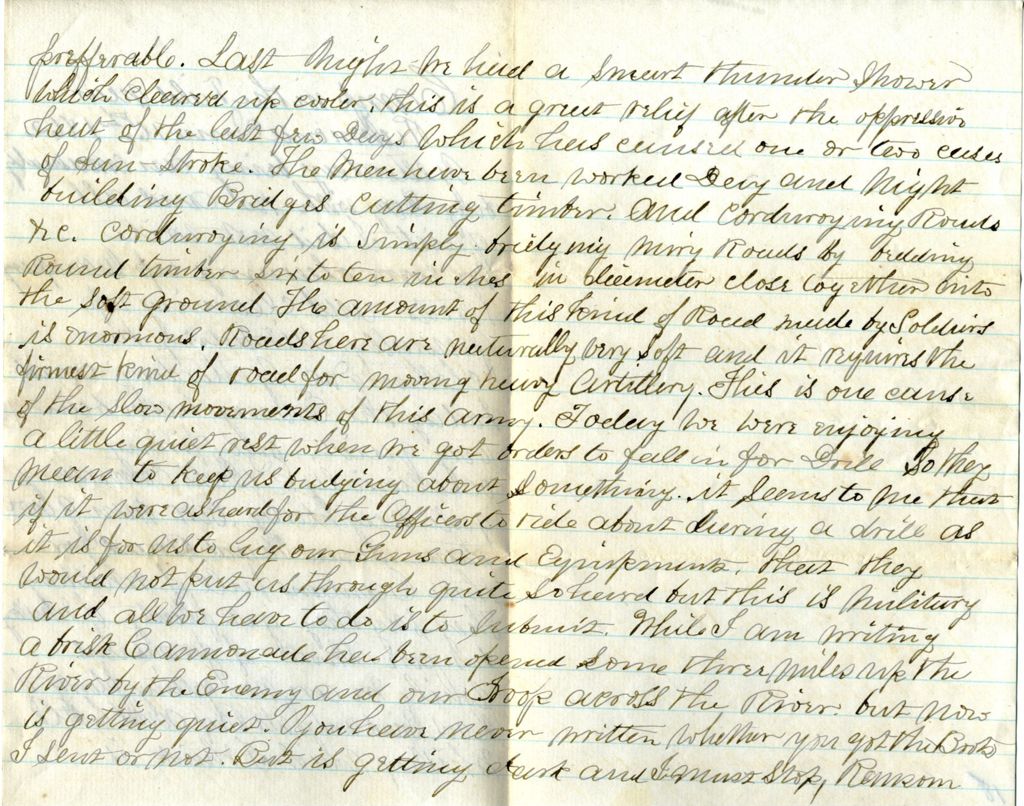 prefferable. Last Night We had a smart thunder Shower
which cleared up cooler, this is a great relief after the oppressive
heat of the last few Days which has caused one or two cases
of Sun-Stroke. The Men have been worked Day and Night
building Bridges cutting timber. and Corduroying Roads
&c. Corduroying is Simply bridging miry Roads by bedding
Round timber six to ten inches in diameter close together into
the soft ground The amount of this kind of Road made by Soldiers
is enormous. Roads here are naturally very soft and it requires the
firmest kind of road for moving heavy Artillery. This is one cause
of the slow movements of this army. Today we were enjoying
a little quiet rest when we got orders to fall in for Drill So they
mean to keep us budying about Something. it seems to me that
if it were as hard for the Officers to ride about during a drill as
it is for us to lug our Guns and Equipments, that they
would not put us through quite so hard but this is military
and all we have to do is to Submit. While I am writing
a brisk Cannonade has been opened some three miles up the
River by the Enemy and our Troop across the River. but now
is getting quiet. You have never written whether you got the Book
I sent or not. But is getting dark and I must Stop, Ransom